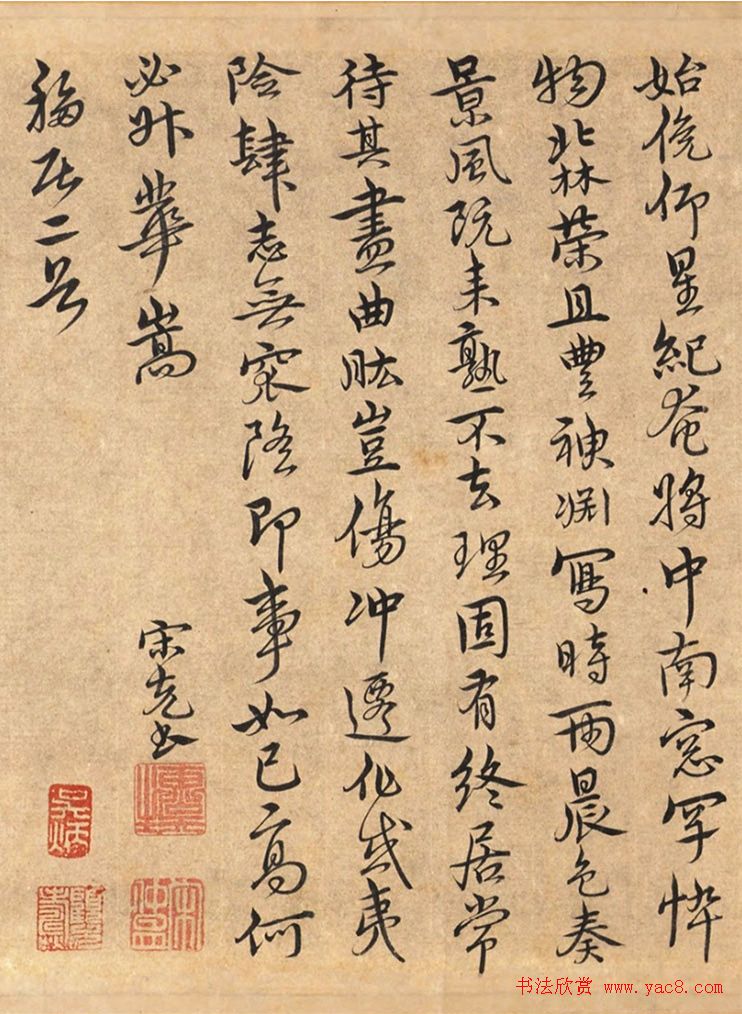 始俛仰星紀奄將中南窓罕悴
物北林榮且豐神渊寫時雨晨色奏
景風既来孰不去理固有終居常
待其盡曲肱豈傷冲遷化或夷
險肆志無窊隆即事如已高何
必升華嵩
宋克書
移居二首
书法欣赏 www.yac8.com